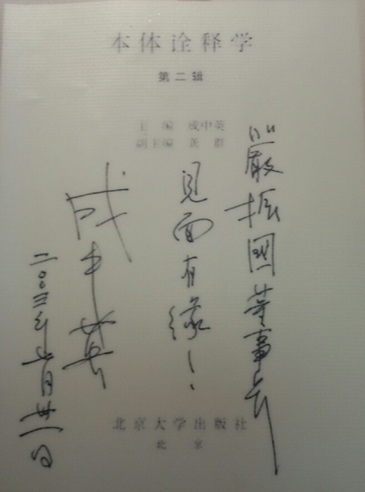 本体诠释学
第二辑
主 编 成中英
副主编 黄 群
嚴振國董事长
見面有缘！
成中英
二〇〇三年七月廿一日
北京大学出版社
北京